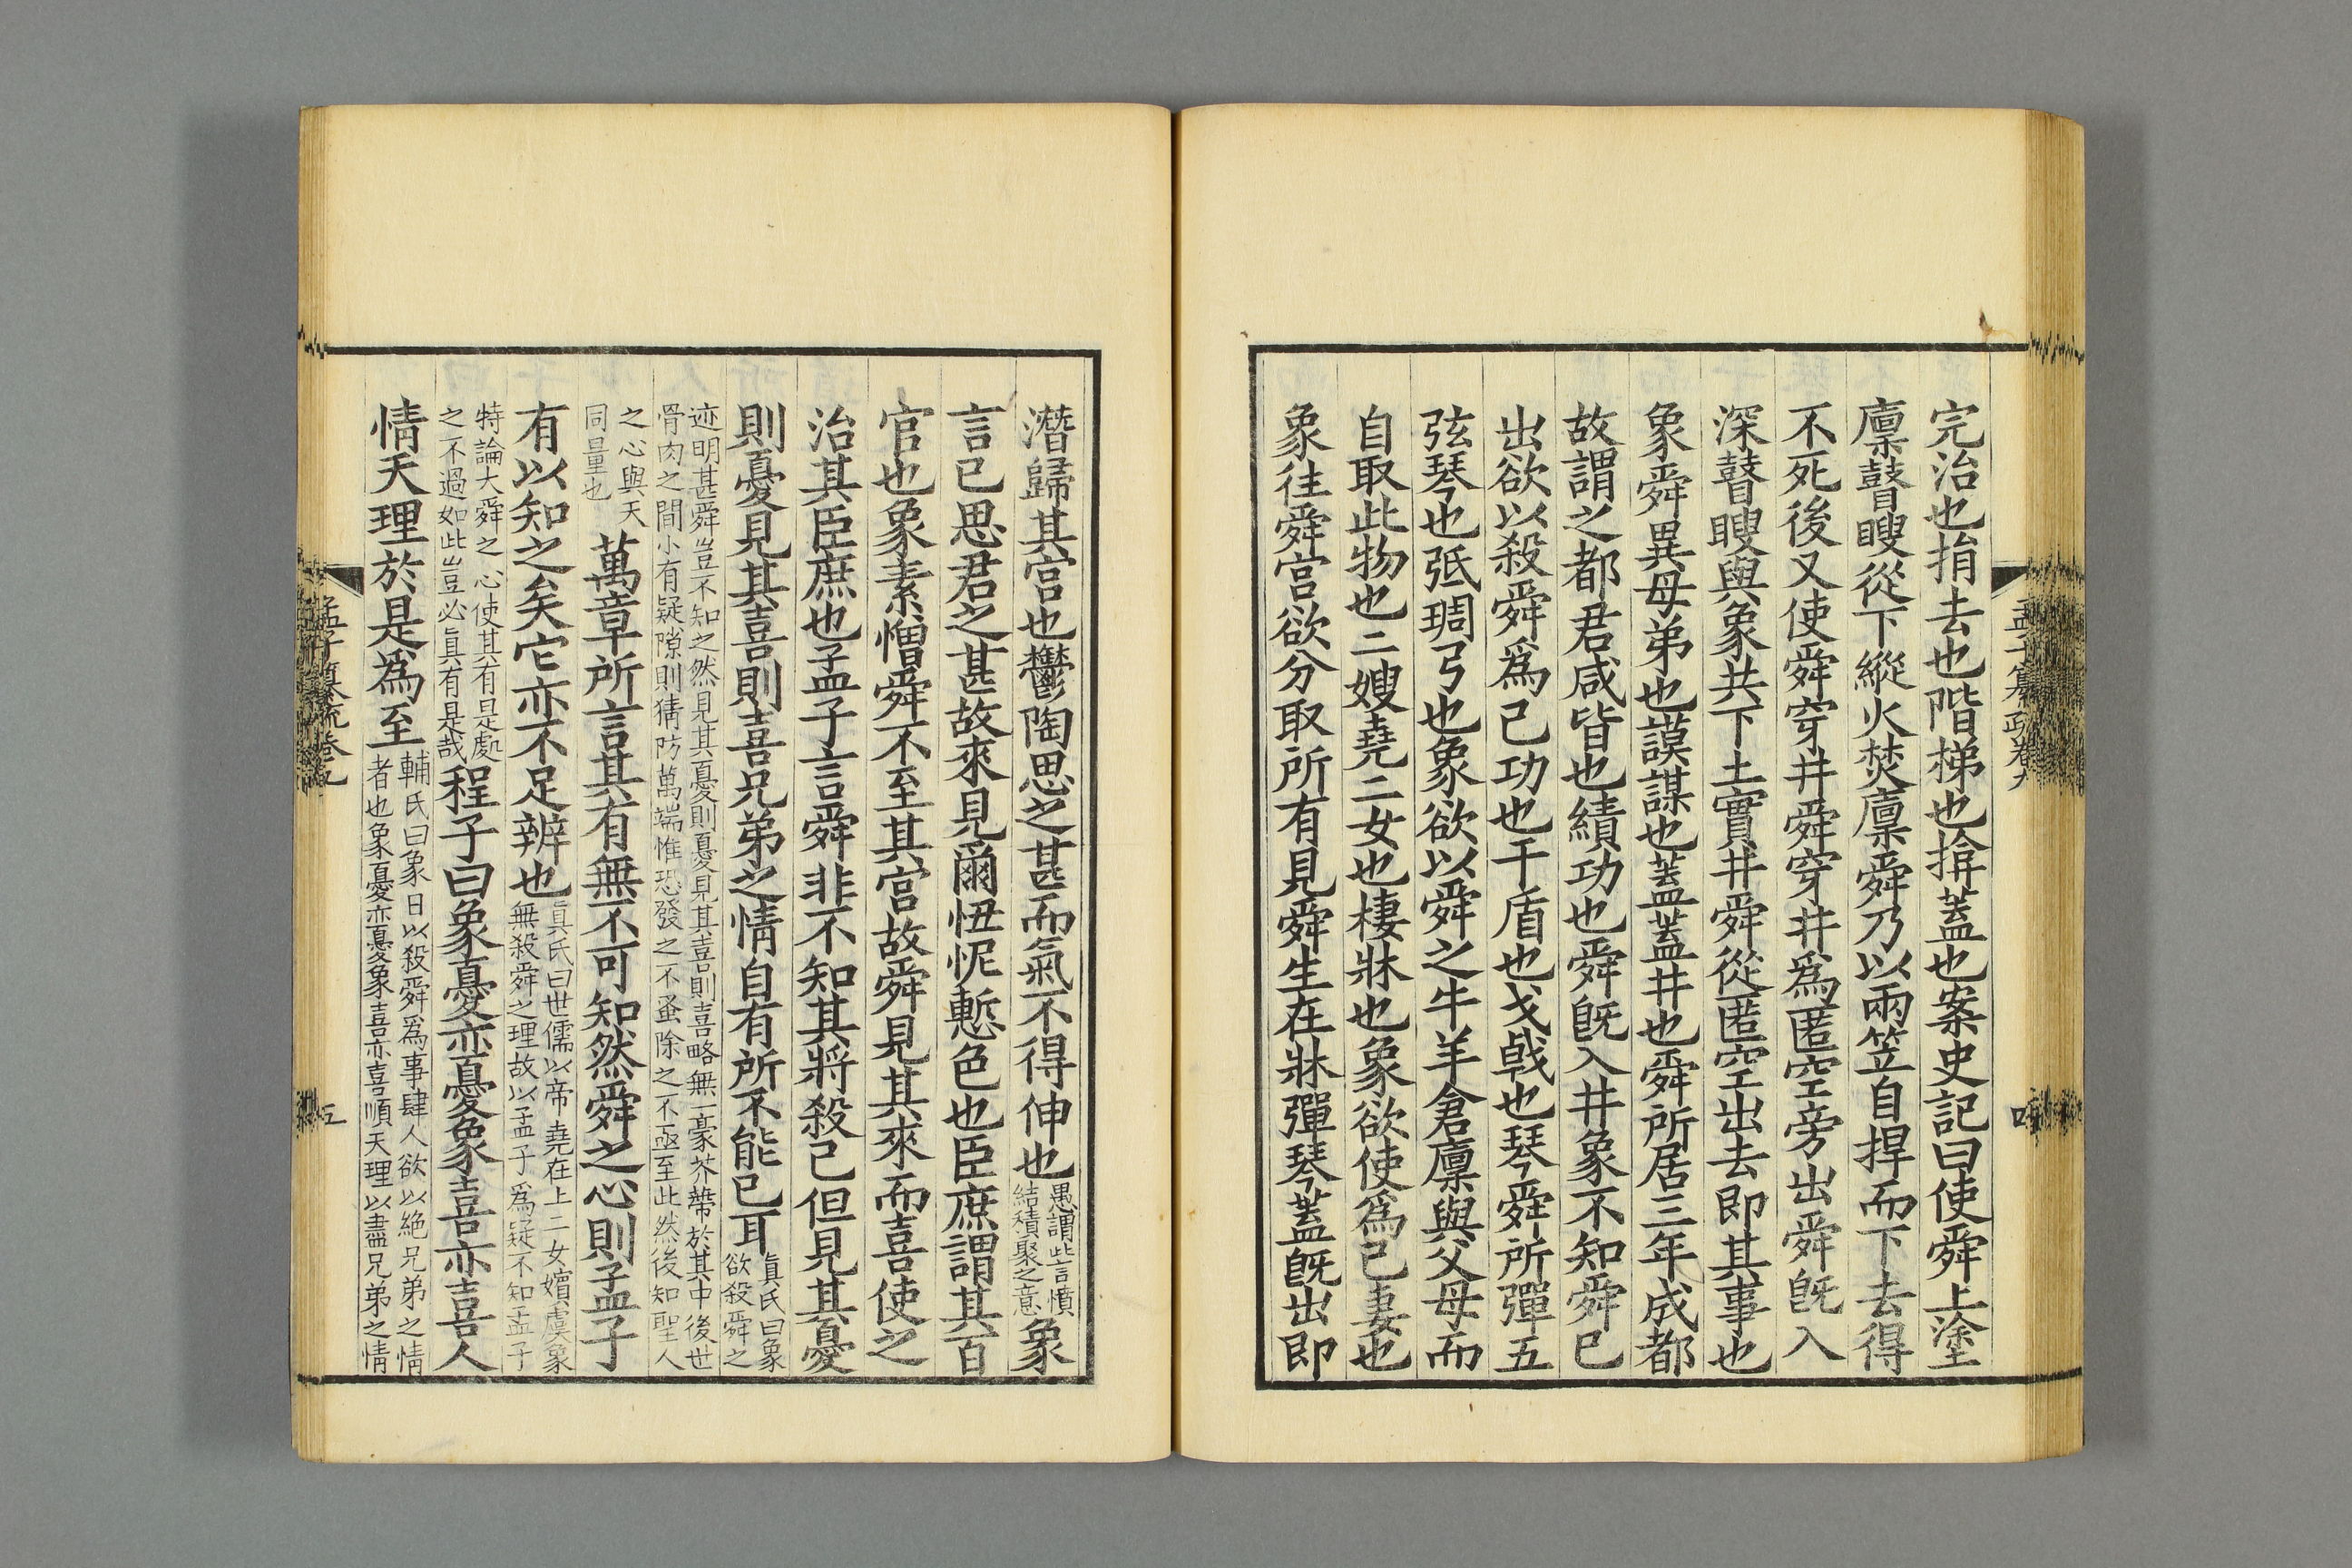 完治也捐去也階梯也揜蓋也案史記曰使舜上塗
廩瞽瞍從下縱火焚廩舜乃以兩笠自捍而下去得
不死後又使舜穿井舜穿井爲匿空旁出舜旣入
深瞽瞍與象共下土實井舜從匿空出去即其事也
象舜異母弟也謨謀也蓋蓋井也舜所居三年成都
故謂之都君咸皆也績功也舜旣入井象不知舜已
出欲以殺舜爲己功也干盾也戈戟也琴舜所彈五
弦琴也弤琱弓也象欲以舜之牛羊倉廩與父母而
自取此物也二嫂堯二女也棲牀也象欲使爲己妻也
象往舜宮欲分取所有見舜生在牀彈琴蓋旣出即
潛歸其宮也鬱陶思之甚而氣不得伸也
愚謂此言憤
結積聚之意
象
言已思君之甚故來見爾忸怩慙色也臣庶謂其百
官也象素憎舜不至其宮故舜見其來而喜使之
治其臣庶也孟子言舜非不知其將殺己但見其憂
則憂見其喜則喜兄弟之情自有所不能已耳
眞氏曰象
欲殺舜之
迹明甚舜豈不知之然見其憂則憂見其喜則喜略無一豪芥蔕於其中後世
骨肉之間小有疑隙則猜防萬端惟恐發之不蚤除之不亟至此然後知聖人
之心與天
同量也
萬章所言其有無不可知然舜之心則孟子
有以知之矣它亦不足辨也
眞氏曰世儒以帝堯在上二女嬪虞象
無殺舜之理故以孟子爲疑不知孟子
特論大舜之心使其有是處
之不過如此豈必眞有是哉
程子曰象憂亦憂象喜亦喜人
情天理於是爲至
輔氏曰象日以殺舜爲事肆人欲以絶兄弟之情
者也象憂亦憂象喜亦喜順天理以盡兄弟之情
五